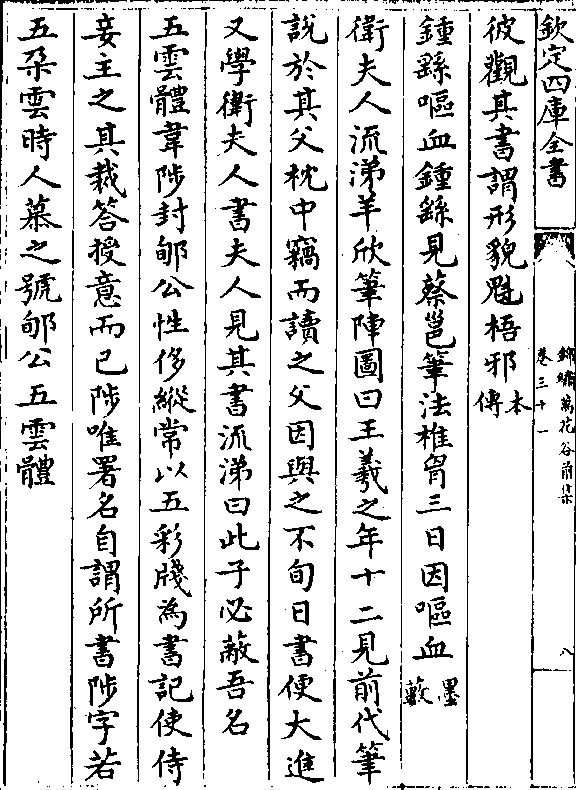 欽定四庫全書
錦繡萬花谷前集
卷三十一
八
彼觀其書謂形貌魁梧邪本傳
鍾繇嘔血鍾繇見蔡邕筆法椎胷三日因嘔血墨藪
衛夫人流涕羊欣筆陣圖曰王羲之年十二見前代筆
說於其父枕中竊而讀之父因與之不旬日書便大進
又學衛夫人書夫人見其書流涕曰此子必蔽吾名
五雲體韋陟封郇公性侈縱常以五彩牋為書記使侍
妾主之其裁答授意而已陟唯署名自謂所書陟字若
五朶雲時人慕之號郇公五雲體